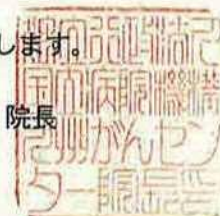 します。
院長
独立行政法人
国立病院機構
九州がんセン
ター院長